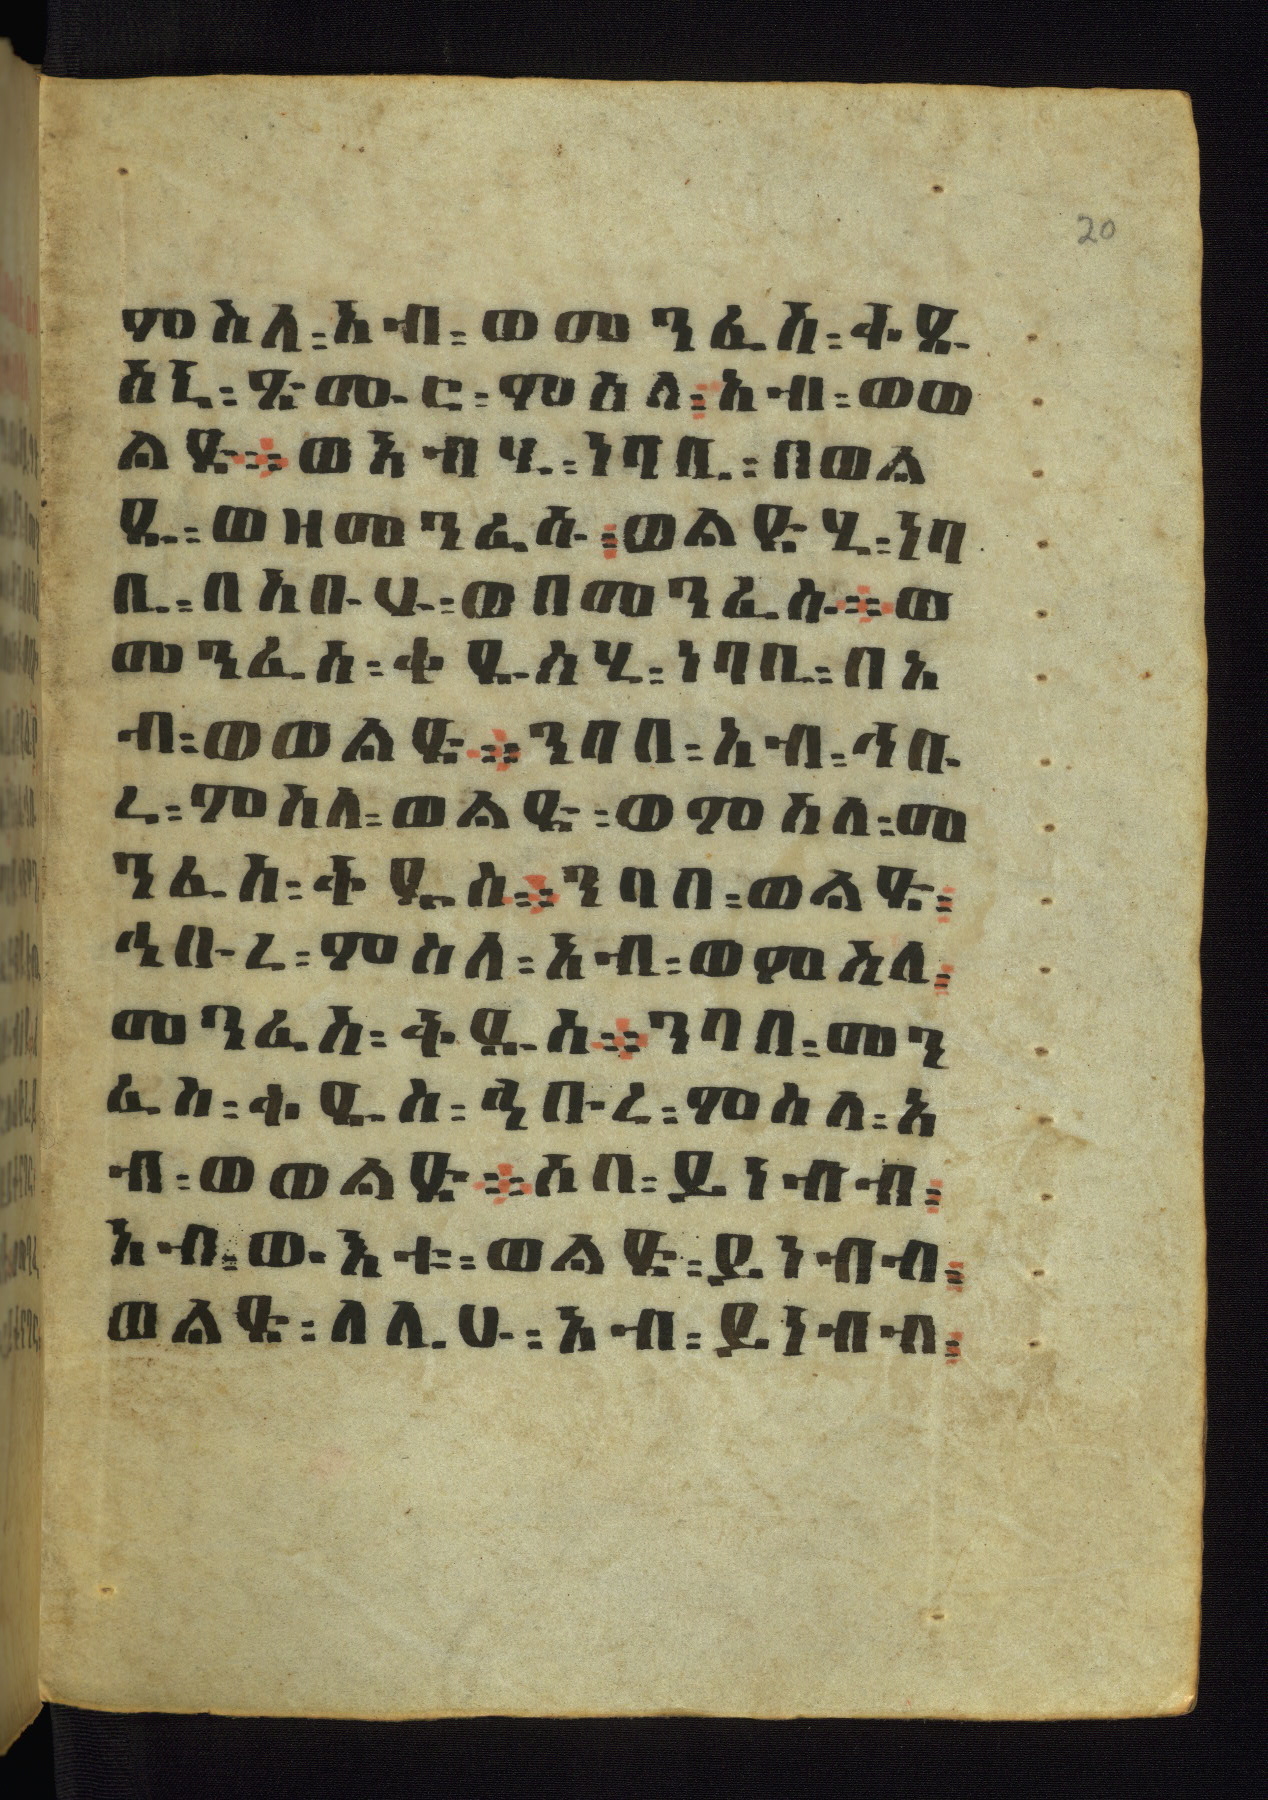 20
ምስለ፡አብ፡ወመንፈስ፡ቅዱ
ስኒ፡ፅሙር፡ምስለ፡አብ፡ወወ
ልድ፡፡ወአብሂ፡ነባቢ፡በወል
ዱ፡ወዘመንፈሱ፡ወልድሂ፡ነባ
ቢ፡በአቡሁ፡ወበመንፈሱ፡፡ወ
መንፈስ፡ቅዱስሂ፡ነባቢ፡በአ
ብ፡ወወልድ፡፡ንበበ፡አብ፡ኅቡ
ረ፡ምስለ፡ወልድ፡ወምስለ፡መ
ንፈስ፡ቅዱስ፡፡ንባበ፡ወልድ፡
ኂቡረ፡ምስለ፡አብ፡ወምስለ፡
መንፈስ፡ቅዱስ፡፡ንባበ፡መን
ፈስ፡ቅዱስ፡ኂቡረ፡ምስለ፡አ
ብ፡ወወልድ፡፡ሶበ፡ይነብብ፡
አብ፡ውእቱ፡ወልድ፡ይነብብ፡
ወልድ፡ለሊሁ፡አብ፡ይነብብ፡